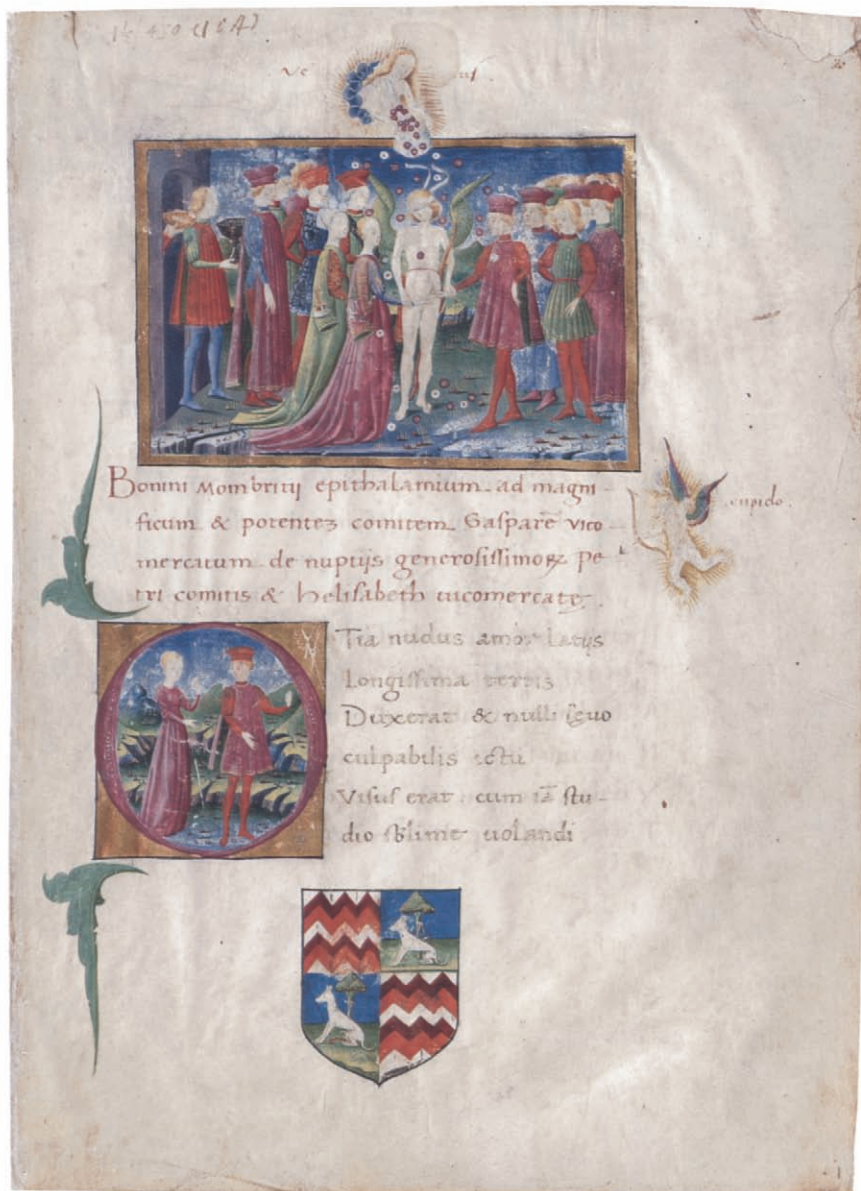 Ve us
Bonini Mombritij epithalamium ad magni-
ficum & potentez comitem Gasparē vico
mercatum de nuptijs generosissimoꝝ pe
tri comitis & helisabeth uicomercatę.
cupido.
Tia nudus amor latijs
Longissima terris
Duxerat & nulli sęuo
culpabilis ictu
Visus erat cum iā stu-
dio sblime uolandi
1